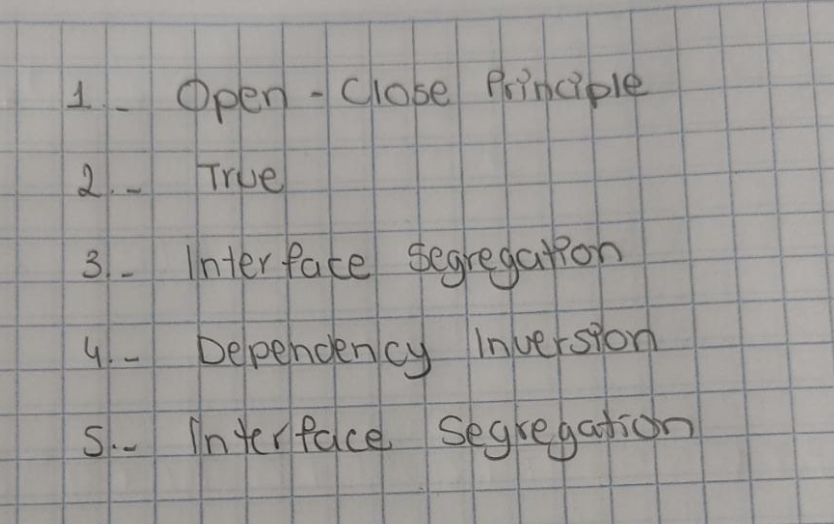 1.- Open - Close Principle
2.- True
3.- Interface Segregation
4.- Dependency Inversion
5.- Interface Segregation